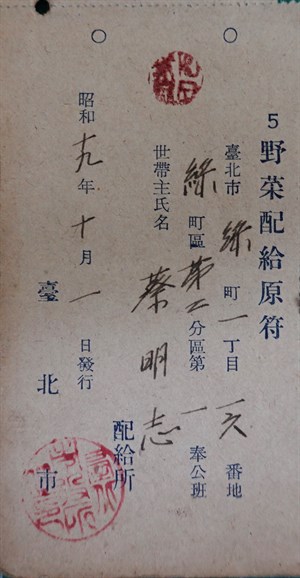 5 野菜配給原符
臺北市 綠 町 一 丁目 一六 番地
綠 町區 第二 分區第 一 奉公班
世帶主氏名 蔡明志
配給所
昭和 十九 年 十 月 一 日發行
臺北市